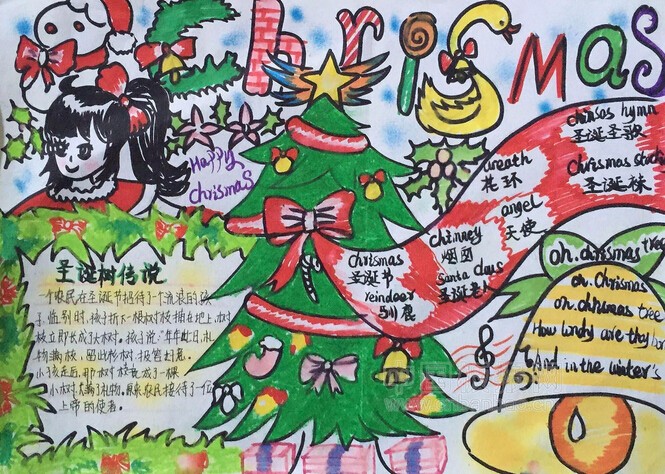 ChrisMaS
Happy
ChrismaS
圣诞树传说
一个农民在圣诞节招待了一个流浪的孩
子,临别时,孩子折下一根树枝插在地上,树
枝立即长成了大树。孩子说:年年此日,礼
物满枝,留此
小孩走后,那树枝变成了一棵
小树,挂满了礼物。原来农民接待了一位
上帝的使者。
chrismas
圣诞节
reindeer
驯鹿
chimney
烟囱
santa claus
圣诞老人
wreath
花环
angel
天使
chrismas hymn
圣诞圣歌
Chrismas stock
圣诞袜
oh. chrismas tree
oh. Chrismas
oh. chrismas tree
How lovely are thy bran
And in the winter's